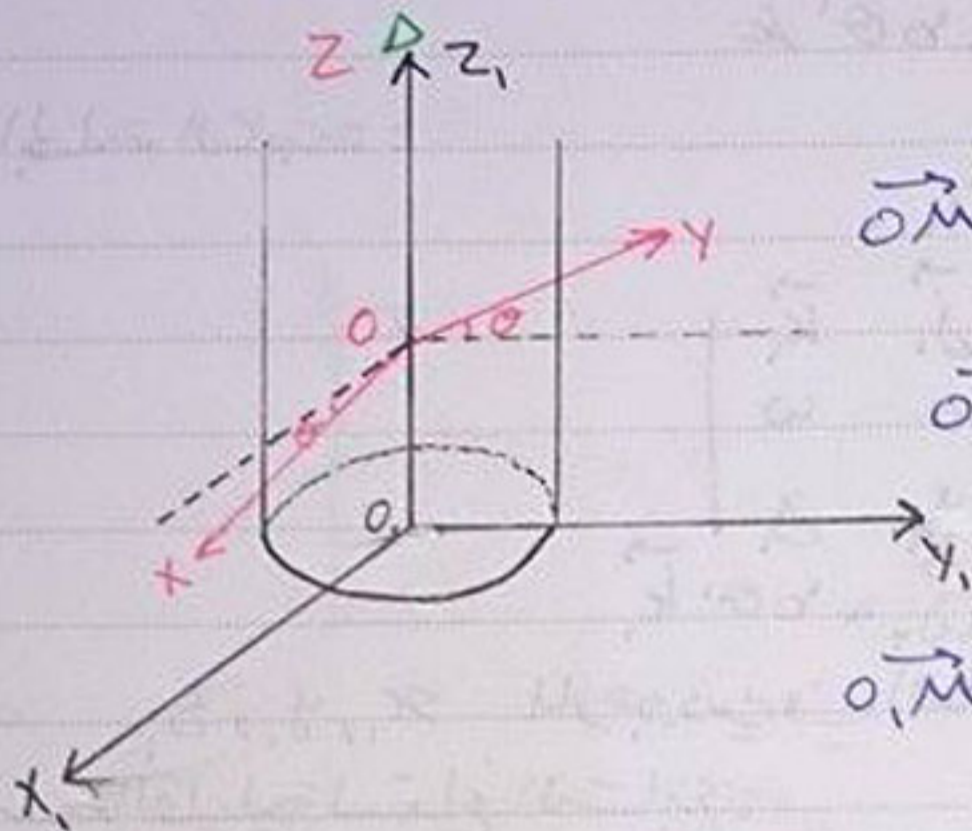 Z Δ Z₁
OM
Y
O θ
O
θ
O₁
X
Y₁
O₁M
X₁